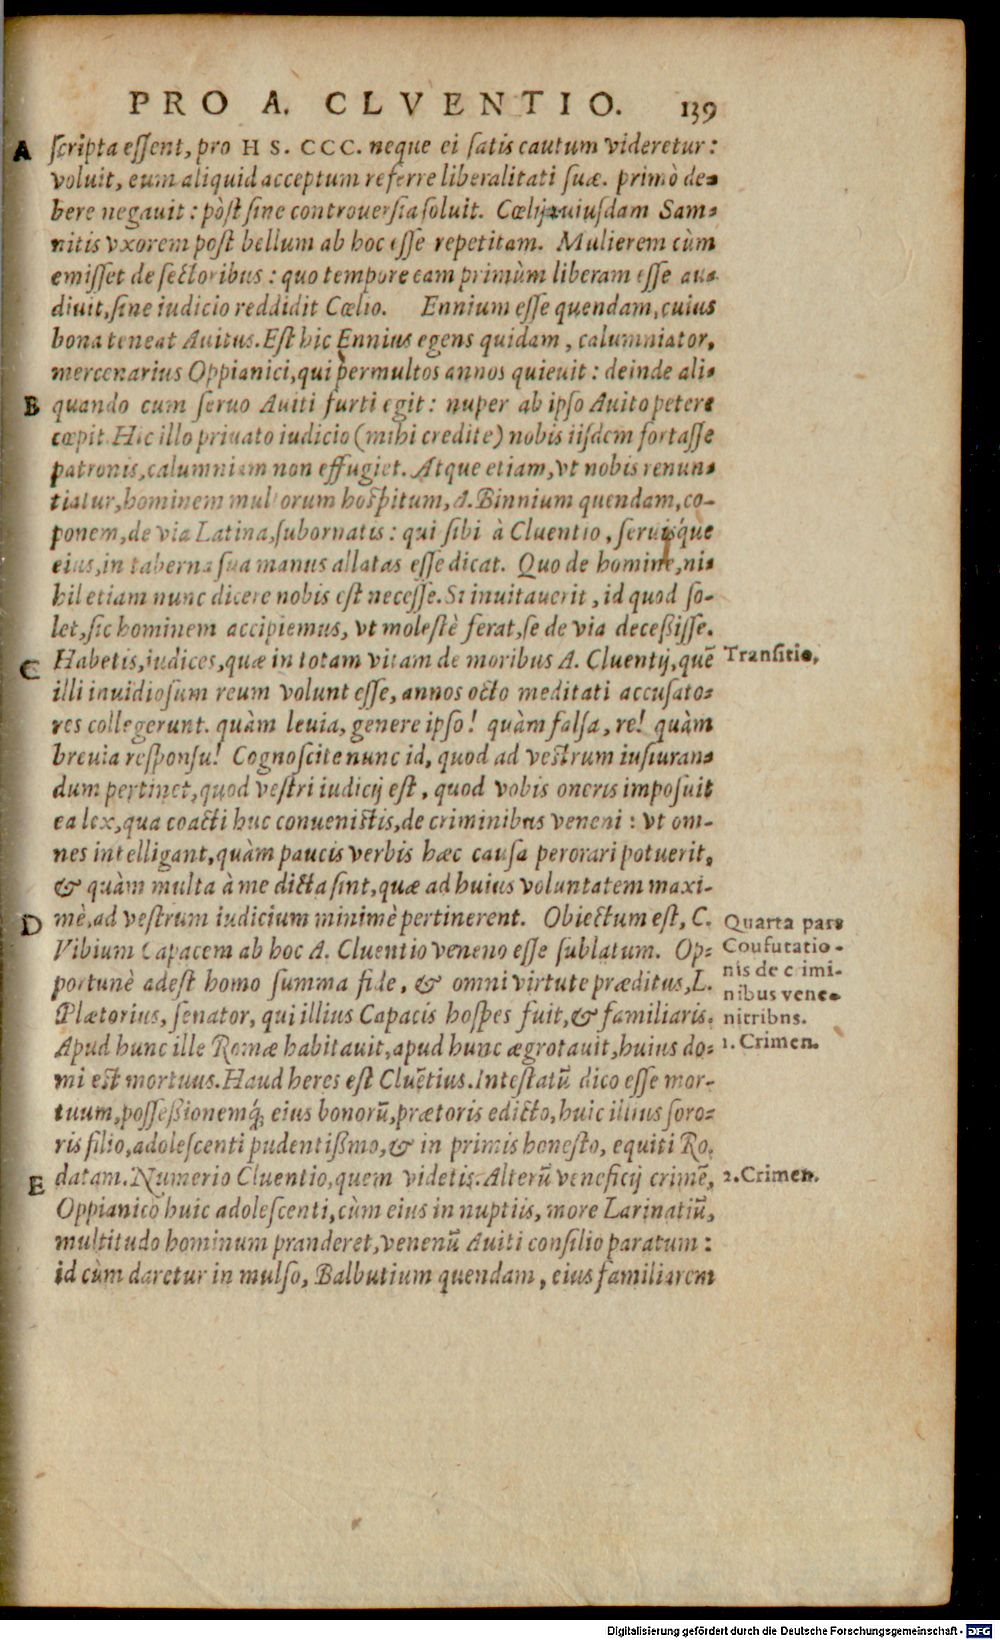 PRO A. CLVENTIO. 139
A ſcripta eſſent, pro HS. CCC. neque ei ſatis cautum videretur:
voluit, eum aliquid acceptum referre liberalitati ſuæ. primò de-
bere negauit: pòst ſine controuerſia ſoluit. Cœlij cuiuſdam Sam-
nitis vxorem post bellum ab hoc eſſe repetitam. Mulierem cùm
emiſſet de ſectoribus: quo tempore eam primùm liberam eſſe au-
diuit, ſine iudicio reddidit Cœlio. Ennium eſſe quendam, cuius
bona teneat Auitus. Eſt hic Ennius egens quidam, calumniator,
mercenarius Oppianici, qui permultos annos quieuit: deinde ali-
B quando cum ſeruo Auiti furti egit: nuper ab ipſo Auito petere
cœpit. Hic illo priuato iudicio (mihi credite) nobis iiſdem fortaſſe
patronis, calumniam non effugiet. Atque etiam, vt nobis renun-
tiatur, hominem multorum hoſpitum, A. Binnium quendam, co-
ponem, de via Latina, ſubornatis: qui ſibi à Cluentio, ſeruisq́ue
eius, in taberna ſua manus allatas eſſe dicat. Quo de homine, ni-
hil etiam nunc dicere nobis eſt neceſſe. Si inuitauerit, id quod ſo-
let, ſic hominem accipiemus, vt moleſtè ferat, ſe de via deceßiſſe.
C Habetis, iudices, quæ in totam vitam de moribus A. Cluentij, quē
Tranſitio.
illi inuidioſum reum volunt eſſe, annos octo meditati accuſato-
res collegerunt. quàm leuia, genere ipſo! quàm falſa, re! quàm
breuia reſponſu! Cognoſcite nunc id, quod ad veſtrum iuſiuran-
dum pertinet, quod veſtri iudicij eſt, quod vobis oneris impoſuit
ea lex, qua coacti huc conueniſtis, de criminibus veneni: vt om-
nes intelligant, quàm paucis verbis hæc cauſa perorari potuerit,
& quàm multa à me dicta ſint, quæ ad huius voluntatem maxi-
D mè, ad veſtrum iudicium minimè pertinerent. Obiectum eſt, C.
Vibium Capacem ab hoc A. Cluentio veneno eſſe ſublatum. Op-
portunè adeſt homo ſumma fide, & omni virtute præditus, L.
Plætorius, ſenator, qui illius Capacis hoſpes fuit, & familiaris.
Quarta pars
Coufutatio-
nis de crimi-
nibus vene-
nitribns.
Apud hunc ille Romæ habitauit, apud hunc ægrotauit, huius do-
1. Crimen.
mi eſt mortuus. Haud heres eſt Cluētius. Inteſtatū dico eſſe mor-
tuum, poſſeßionemq́; eius bonorū, prætoris edicto, huic illius ſoro-
ris filio, adoleſcenti pudentißmo, & in primis honeſto, equiti Ro.
E datam. Numerio Cluentio, quem videtis. Alterū veneficij crimē,
2. Crimen.
Oppianico huic adoleſcenti, cùm eius in nuptiis, more Larinatiū,
multitudo hominum pranderet, venenū Auiti conſilio paratum:
id cùm daretur in mulſo, Balbutium quendam, eius familiarem
Digitalisierung gefördert durch die Deutsche Forschungsgemeinschaft - DFG